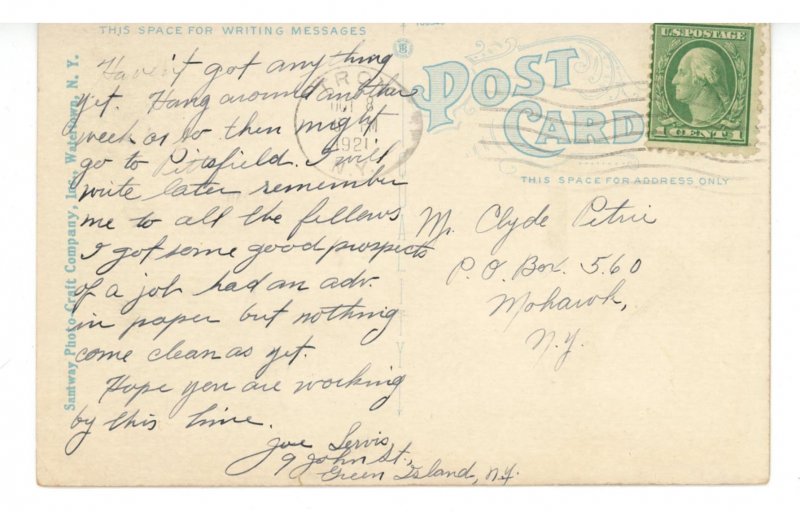 THIS SPACE FOR WRITING MESSAGES
Haven't got anything
yet. Hang around another
week or so then might
go to Pittsfield. I will
write later remember
me to all the fellows
I got some good prospects
of a job had an adv.
in paper but nothing
come clean as yet.
Hope you are working
by this time.
Joe Servis
9 John St.
Green Island, N.Y.
Santway Photo-Craft Company, Inc., Watertown, N. Y.
TROY
1921
N.Y.
POST
CARD
U.S. POSTAGE
1 CENT 1
THIS SPACE FOR ADDRESS ONLY
Mr. Clyde Petrie
P.O. Box. 560
Mohawk,
N.Y.